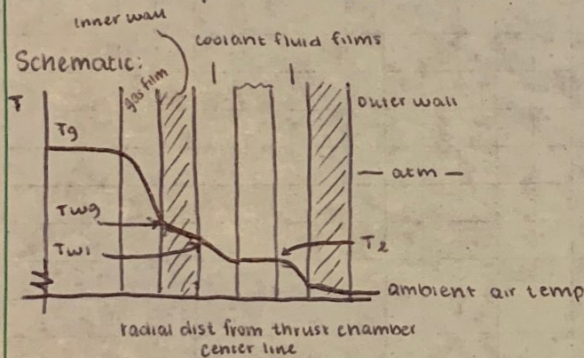 inner wall
coolant fluid films
Schematic:
gas film
outer wall
T
Tg
atm
Twg
Tw1
T2
ambient air temp
radial dist from thrust chamber
center line